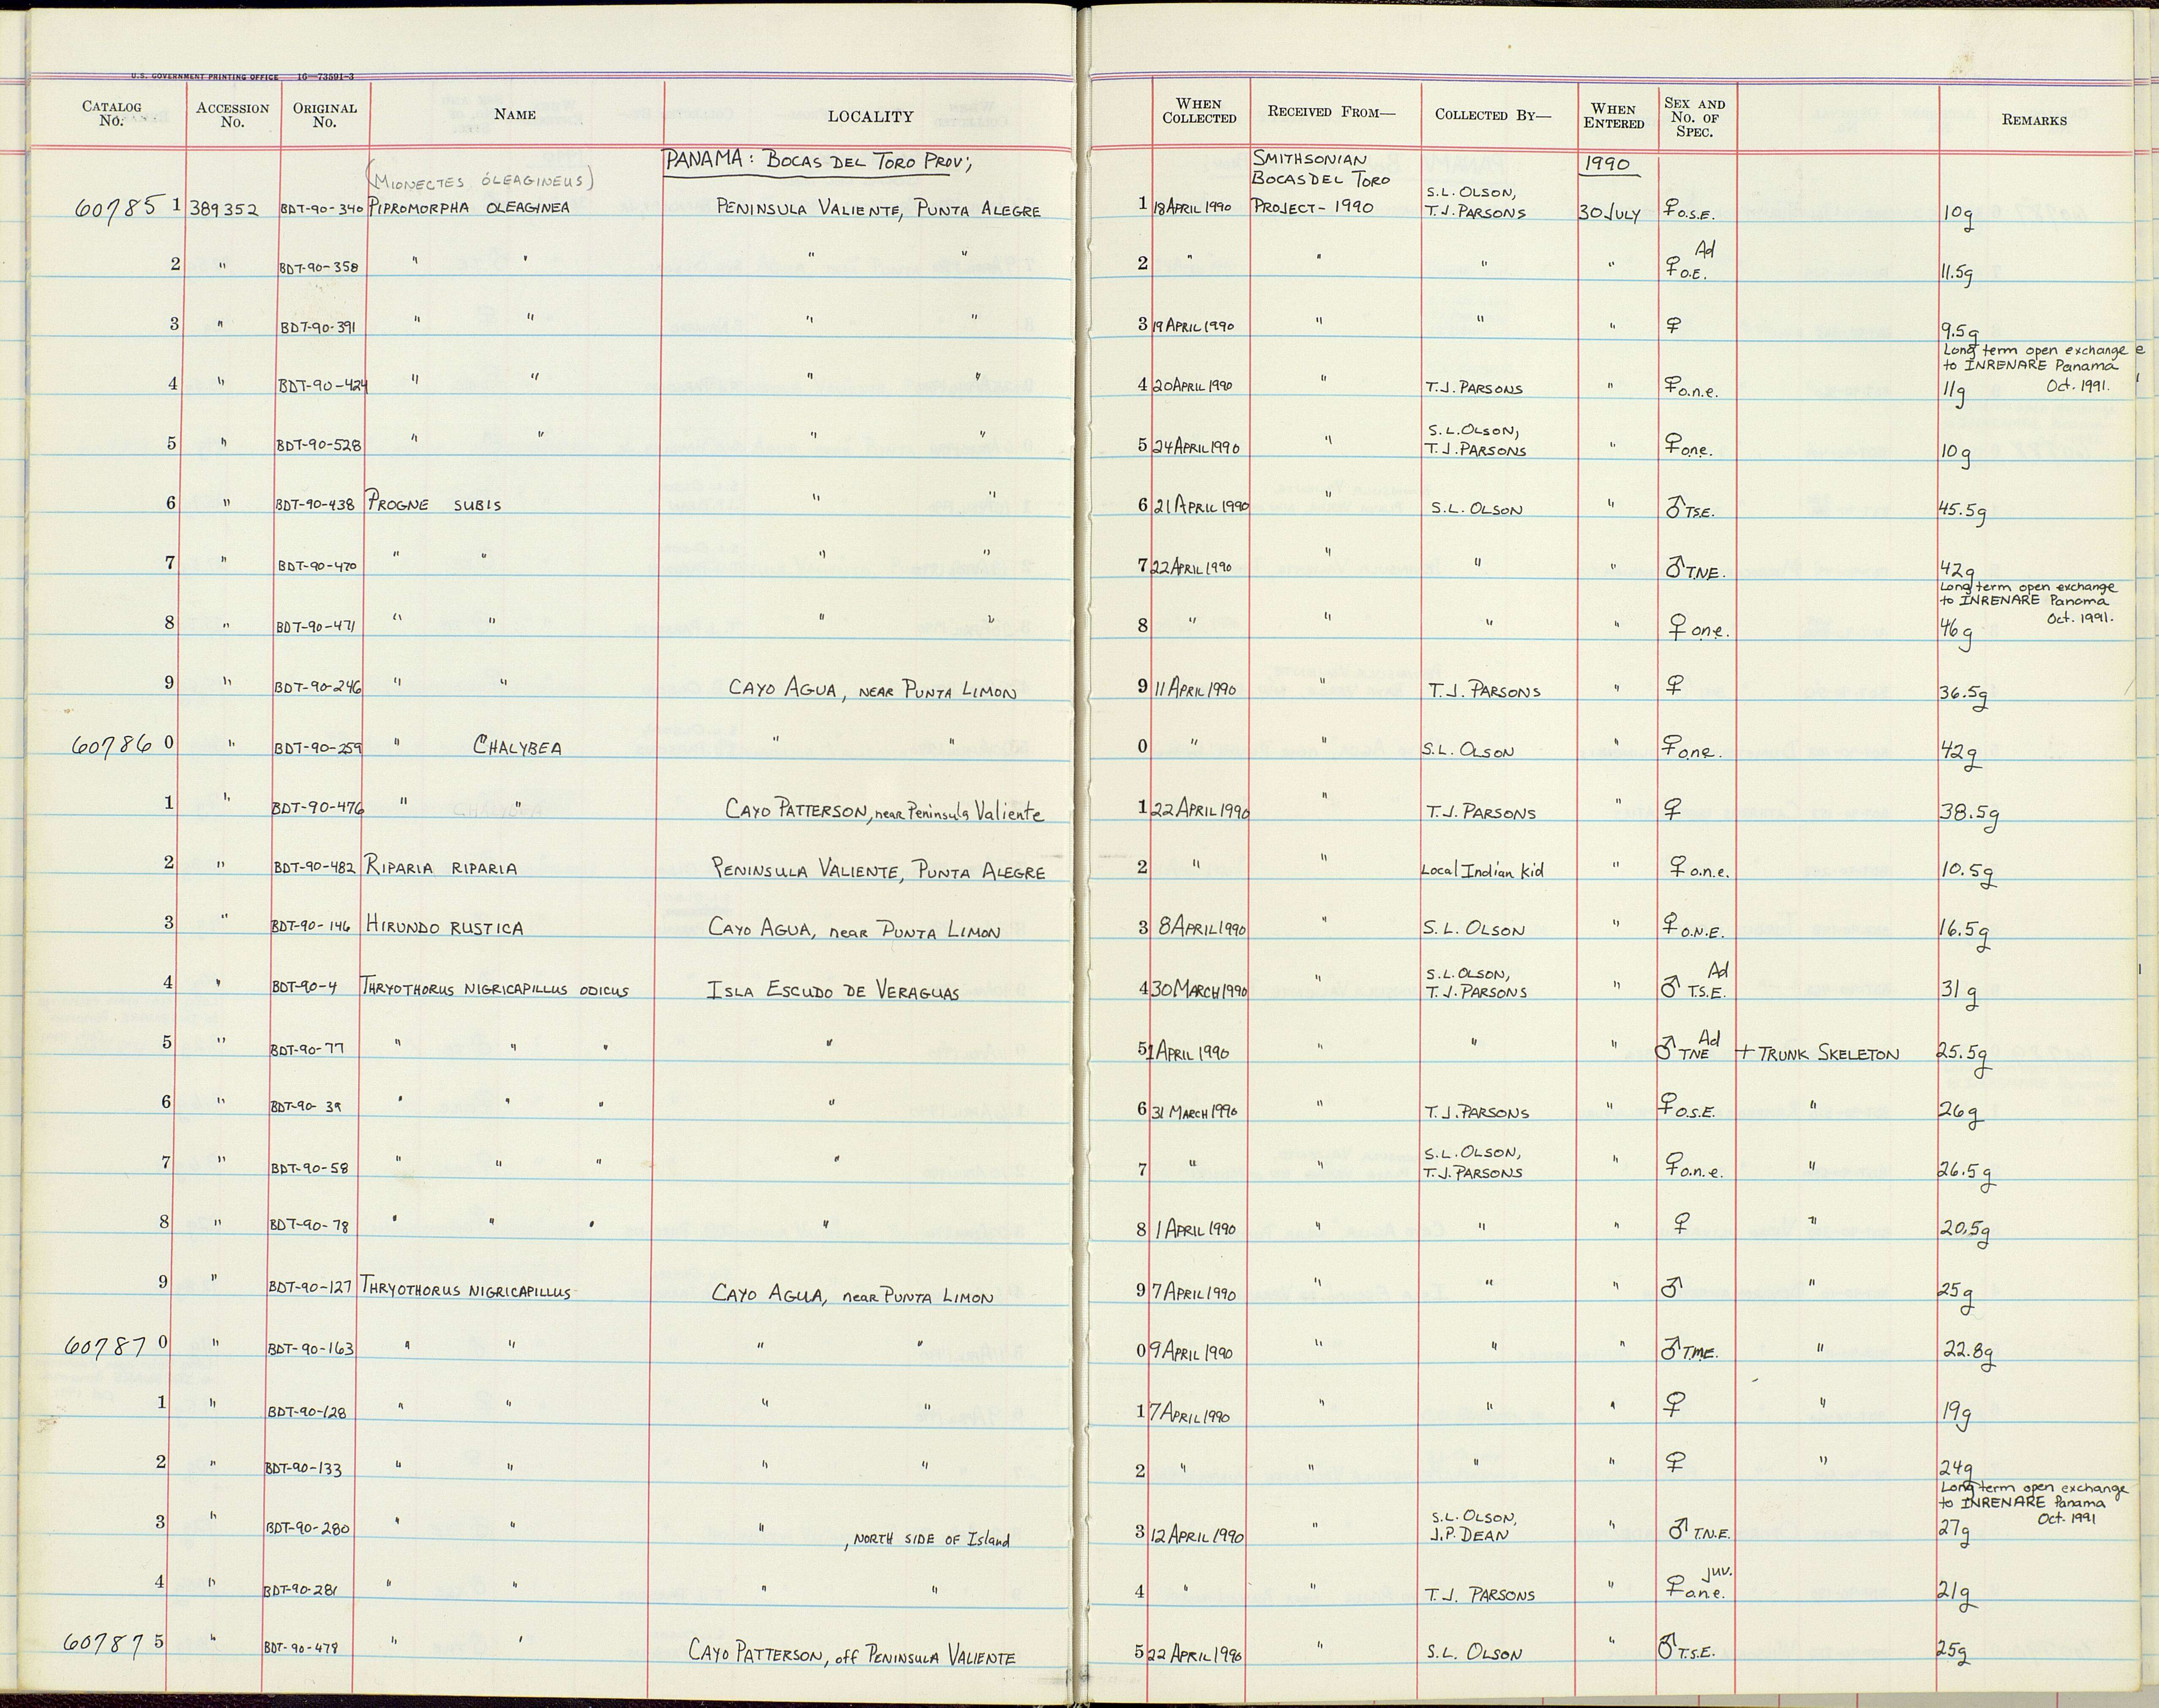 U.S. GOVERNMENT PRINTING OFFICE 16—73591-3
CATALOG No. ACCESSION No. ORIGINAL No. NAME LOCALITY WHEN COLLECTED RECEIVED FROM— COLLECTED BY— WHEN ENTERED SEX AND No. OF SPEC. REMARKS
PANAMA: BOCAS DEL TORO PROV; SMITHSONIAN 1990
(MIONECTES OLEAGINEUS) BOCAS DEL TORO S.L. OLSON,
60785 1 389352 BDT-90-340 PIPROMORPHA OLEAGINEA PENINSULA VALIENTE, PUNTA ALEGRE 1 18 APRIL 1990 PROJECT - 1990 T.J. PARSONS 30 JULY ♀ O.S.E. 10g
Ad
2 " BDT-90-358 " " " " 2 " " " " ♀ O.E. 11.5g
3 " BDT-90-391 " " " " 3 19 APRIL 1990 " " " ♀ 9.5g
Long term open exchange
to INRENARE Panama
4 " BDT-90-424 " " " " 4 20 APRIL 1990 " T.J. PARSONS " ♀ o.n.e. 11g Oct. 1991.
S.L. OLSON,
5 " BDT-90-528 " " " " 5 24 APRIL 1990 " T.J. PARSONS " ♀ one. 10g
6 " BDT-90-438 PROGNE SUBIS " " 6 21 APRIL 1990 " S.L. OLSON " ♂ T.S.E. 45.5g
7 " BDT-90-470 " " " " 7 22 APRIL 1990 " " " ♂ T.N.E. 42g
Long term open exchange
to INRENARE Panama
8 " BDT-90-471 " " " " 8 " " " " ♀ one. 46g Oct. 1991.
9 " BDT-90-246 " " CAYO AGUA, NEAR PUNTA LIMON 9 11 APRIL 1990 " T.J. PARSONS " ♀ 36.5g
60786 0 " BDT-90-259 " CHALYBEA " " 0 " " S.L. OLSON " ♀ one. 42g
1 " BDT-90-476 " " CAYO PATTERSON, near Peninsula Valiente 1 22 APRIL 1990 " T.J. PARSONS " ♀ 38.5g
2 " BDT-90-482 RIPARIA RIPARIA PENINSULA VALIENTE, PUNTA ALEGRE 2 " " Local Indian kid " ♀ o.n.e. 10.5g
3 " BDT-90-146 HIRUNDO RUSTICA CAYO AGUA, near PUNTA LIMON 3 8 APRIL 1990 " S.L. OLSON " ♀ O.N.E. 16.5g
S.L. OLSON, Ad
4 " BDT-90-4 THRYOTHORUS NIGRICAPILLUS ODICUS ISLA ESCUDO DE VERAGUAS 4 30 MARCH 1990 " T.J. PARSONS " ♂ T.S.E. 31g
Ad
5 " BDT-90-77 " " " " 5 1 APRIL 1990 " " " ♂ TNE + TRUNK SKELETON 25.5g
6 " BDT-90-39 " " " " 6 31 MARCH 1990 " T.J. PARSONS " ♀ O.S.E. " 26g
S.L. OLSON,
7 " BDT-90-58 " " " " 7 " " T.J. PARSONS " ♀ o.n.e. " 26.5g
8 " BDT-90-78 " " " " 8 1 APRIL 1990 " " " ♀ " 20.5g
9 " BDT-90-127 THRYOTHORUS NIGRICAPILLUS CAYO AGUA, near PUNTA LIMON 9 7 APRIL 1990 " " " ♂ " 25g
60787 0 " BDT-90-163 " " " " 0 9 APRIL 1990 " " " ♂ T.M.E. " 22.8g
1 " BDT-90-128 " " " " 1 7 APRIL 1990 " " " ♀ " 19g
2 " BDT-90-133 " " " " 2 " " " " ♀ " 24g
Long term open exchange
S.L. OLSON, to INRENARE Panama
3 " BDT-90-280 " " " , NORTH SIDE OF Island 3 12 APRIL 1990 " J.P. DEAN " ♂ T.N.E. 27g Oct. 1991
juv.
4 " BDT-90-281 " " " " 4 " " T.J. PARSONS " ♀ o.n.e. 21g
60787 5 " BDT-90-478 " " CAYO PATTERSON, off PENINSULA VALIENTE 5 22 APRIL 1990 " S.L. OLSON " ♂ T.S.E. 25g